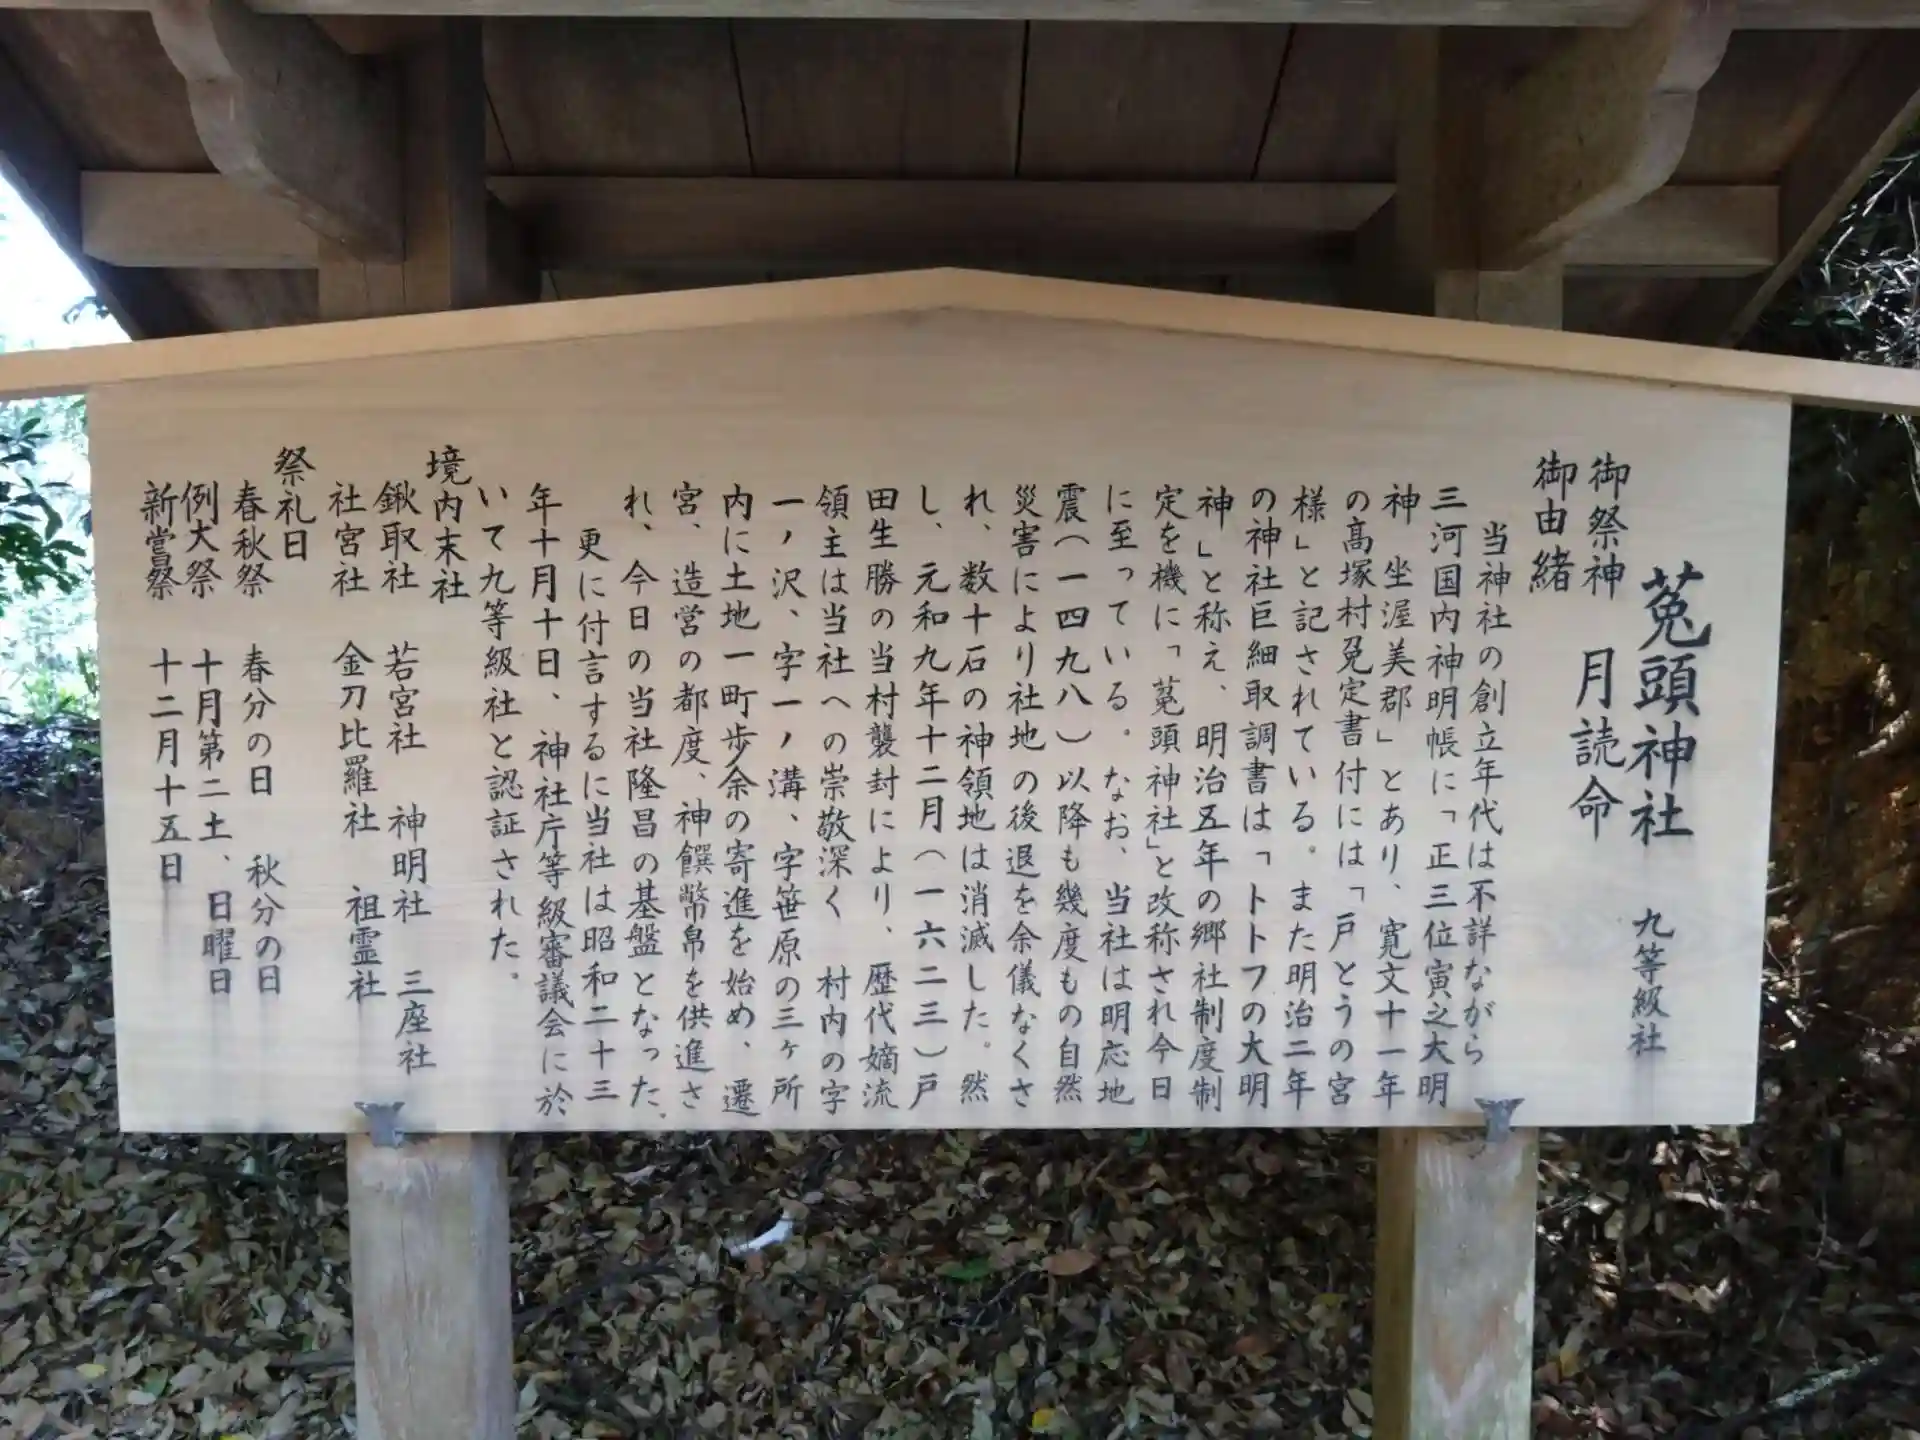 菟頭神社 九等級社
御祭神 月読命
御由緒
当神社の創立年代は不詳ながら
三河国内神明帳に「正三位寅之大明
神 坐渥美郡」とあり、寛文十一年
の高塚村免定書付には「戸とうの宮
様」と記されている。また明治二年
の神社巨細取調書は「トトフの大明
神」と称え、明治五年の郷社制度制
定を機に「菟頭神社」と改称され今日
に至っている。なお、当社は明応地
震(一四九八)以降も幾度もの自然
災害により社地の後退を余儀なくさ
れ、数十石の神領地は消滅した。然
し、元和九年十二月(一六二三)戸
田生勝の当村襲封により、歴代嫡流
領主は当社への崇敬深く 村内の字
一ノ沢、字一ノ溝、字笹原の三ヶ所
内に土地一町歩余の寄進を始め、遷
宮、造営の都度、神饌幣帛を供進さ
れ、今日の当社隆昌の基盤となった。
更に付言するに当社は昭和二十三
年十月十日、神社庁等級審議会に於
いて九等級社と認証された。
境内末社
鍬取社 若宮社 神明社 三座社
社宮社 金刀比羅社 祖霊社
祭礼日
春秋祭 春分の日 秋分の日
例大祭 十月第二土、日曜日
新嘗祭 十二月十五日